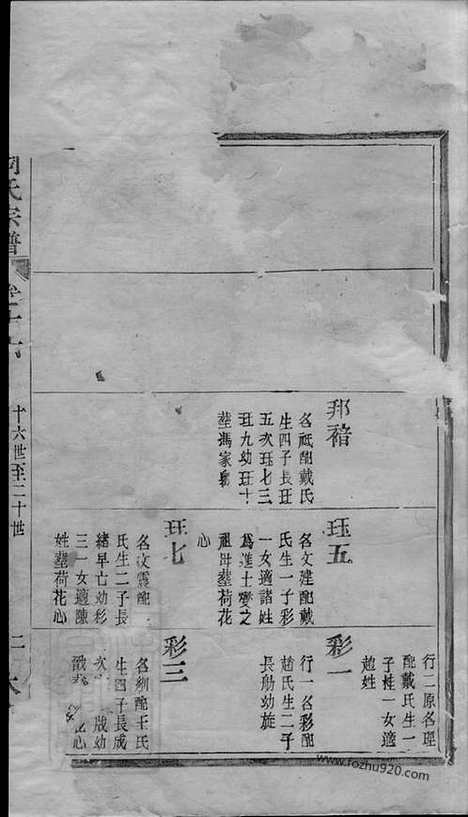 氏宗譜
卷十六
十六世至二十世
二
行二原名理
配戴氏生一
子桂一女適
趙姓
邦𥙷
名祗配戴氏
生四子長珏
五次珏七三
珏九幼珏十
塟馮家
珏五
名文建配戴
氏生一子彩
一女適諸姓
為進士燮之
祖母塟荷花
心
彩一
行一名彩配
趙氏生二子
長勛幼旋
珏七
名文震配
氏生二子長
緒早亡幼彩
三一女適陳
姓塟荷花心
彩三
名綱配王氏
生四子長成
次 成幼
心
www.fozhu920.com